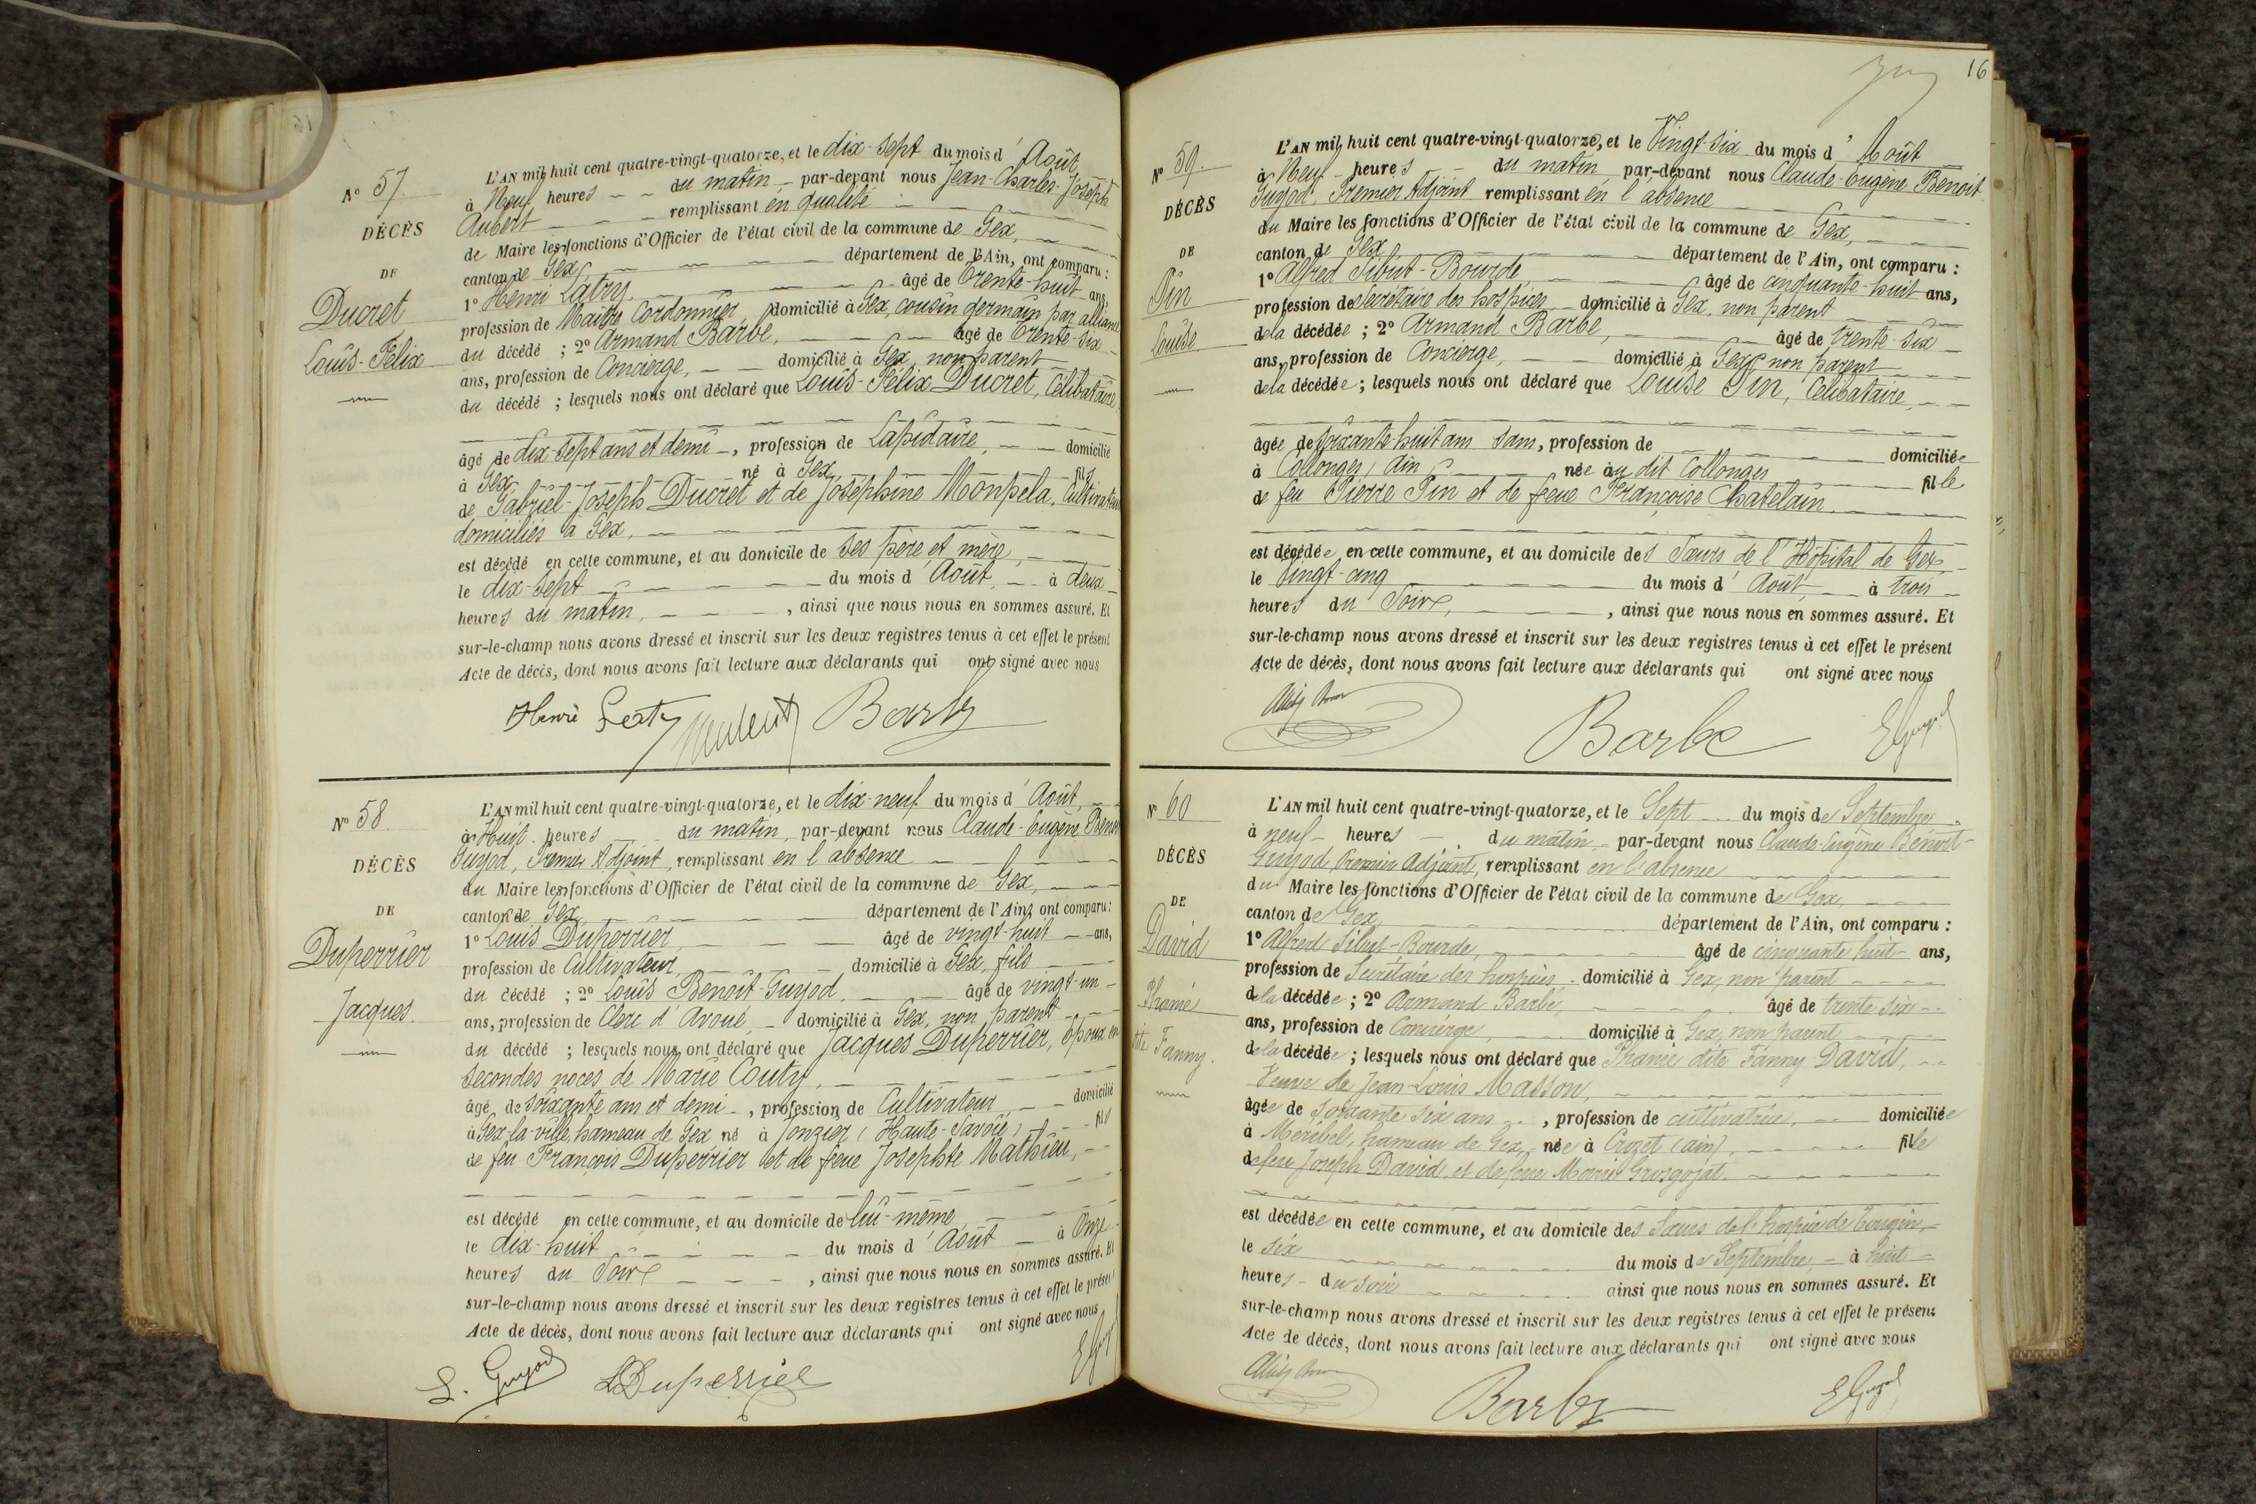 N° 57.
DÉCÈS
DE
Ducret
Louis-Félix
L'AN mil huit cent quatre-vingt-quatorze, et le dix-sept du mois d'Août,
à Neuf heures du matin par-devant nous Jean-Charles-Joseph
Aubert remplissant en qualité
de Maire les fonctions d'Officier de l'état civil de la commune de Gex,
canton de Gex, département de l'Ain, ont comparu :
1° Henri âgé de Trente-huit ans,
profession de Maître Cordonnier, domicilié à Gex, cousin germain par alliance
du décédé ; 2° Armand Barbe, âgé de Trente-six
ans, profession de Concierge, domicilié à Gex, non parent
du décédé ; lesquels nous ont déclaré que Louis-Félix Ducret, Célibataire,
âgé de dix-sept ans et demi, profession de Lapidaire, domicilié
à Gex né à Gex fils
de Gabriel-Joseph Ducret et de Joséphine Monpela, Cultivateurs
domiciliés à Gex,
est décédé en cette commune, et au domicile de ses père et mère,
le dix-sept du mois d'Août, à deux
heures du matin, , ainsi que nous nous en sommes assuré. Et
sur-le-champ nous avons dressé et inscrit sur les deux registres tenus à cet effet le présent
Acte de décès, dont nous avons fait lecture aux déclarants qui ont signé avec nous
Henri Barbe
N° 58.
DÉCÈS
DE
Duperrier
Jacques.
L'AN mil huit cent quatre-vingt-quatorze, et le dix-neuf du mois d'Août,
à Huit heures du matin, par-devant nous Claude-Eugène Benoit
Guyod, Premier Adjoint, remplissant en l'absence
du Maire les fonctions d'Officier de l'état civil de la commune de Gex,
canton de Gex département de l'Ain, ont comparu :
1° Louis Duperrier, âgé de vingt-huit ans,
profession de Cultivateur, domicilié à Gex, fils
du décédé ; 2° Louis Benoit-Guyod, âgé de vingt-un
ans, profession de Clerc d'Avoué, domicilié à Gex, non parent
du décédé ; lesquels nous ont déclaré que Jacques Duperrier, époux en
secondes noces de Marie Couty,
âgé de soixante ans et demi, profession de Cultivateur, domicilié
à Gex-la-ville, hameau de Gex né à Jonzier (Haute-Savoie) fils
de feu François Duperrier et de feue Josephte Mathieu,
est décédé en cette commune, et au domicile de lui-même
le dix-huit du mois d'Août à Onze
heures du Soir , ainsi que nous nous en sommes assuré. Et
sur-le-champ nous avons dressé et inscrit sur les deux registres tenus à cet effet le présent
Acte de décès, dont nous avons fait lecture aux déclarants qui ont signé avec nous
L. Guyod LDuperrier
16
N° 59.
DÉCÈS
DE
Pin
Louise
L'AN mil huit cent quatre-vingt-quatorze, et le Vingt-six du mois d'Août
à Neuf heures du matin par-devant nous Claude-Eugène Benoit
Guyod, Premier Adjoint remplissant en l'absence
du Maire les fonctions d'Officier de l'état civil de la commune de Gex,
canton de Gex département de l'Ain, ont comparu :
1° Alfred Sibut-Bourde âgé de cinquante-huit ans,
profession de Secrétaire des hospices domicilié à Gex, non parent
de la décédée ; 2° Armand Barbe, âgé de trente-six
ans, profession de Concierge, domicilié à Gex, non parent
de la décédée ; lesquels nous ont déclaré que Louise Pin, Célibataire,
âgée de soixante-huit ans sans, profession de domiciliée
à Collonges, Ain née au dit Collonges fille
de feu Pierre Pin et de feue Françoise Chatelain.
est décédée en cette commune, et au domicile des Sœurs de l'Hôpital de Gex
le Vingt-cinq du mois d'Août, à trois
heures du Soir, , ainsi que nous nous en sommes assuré. Et
sur-le-champ nous avons dressé et inscrit sur les deux registres tenus à cet effet le présent
Acte de décès, dont nous avons fait lecture aux déclarants qui ont signé avec nous
Barbe EGuyod
N° 60
DÉCÈS
DE
David
Phanie
dite Fanny.
L'AN mil huit cent quatre-vingt-quatorze, et le Sept du mois de Septembre
à neuf heures du matin par-devant nous Claude-Eugène Benoit-
Guyod, Premier Adjoint, remplissant en l'absence
du Maire les fonctions d'Officier de l'état civil de la commune de Gex,
canton de Gex département de l'Ain, ont comparu :
1° Alfred Sibut-Bourde, âgé de cinquante huit ans,
profession de Secrétaire des hospices domicilié à Gex, non parent
de la décédée ; 2° Armand Barbe, âgé de trente six
ans, profession de Concierge, domicilié à Gex, non parent
de la décédée ; lesquels nous ont déclaré que Phanie dite Fanny David,
Veuve de Jean-Louis Masson,
âgée de soixante six ans, profession de cultivatrice, domiciliée
à Meribel, hameau de Gex, née à Crozet (Ain), fille
de feu Joseph David et de feue Marie Grosgojat.
est décédée en cette commune, et au domicile des Sœurs de l'hospice de Tougin,
le six du mois de Septembre, à huit
heures du soir ainsi que nous nous en sommes assuré. Et
sur-le-champ nous avons dressé et inscrit sur les deux registres tenus à cet effet le présent
Acte de décès, dont nous avons fait lecture aux déclarants qui ont signé avec nous
Barbe EGuyod